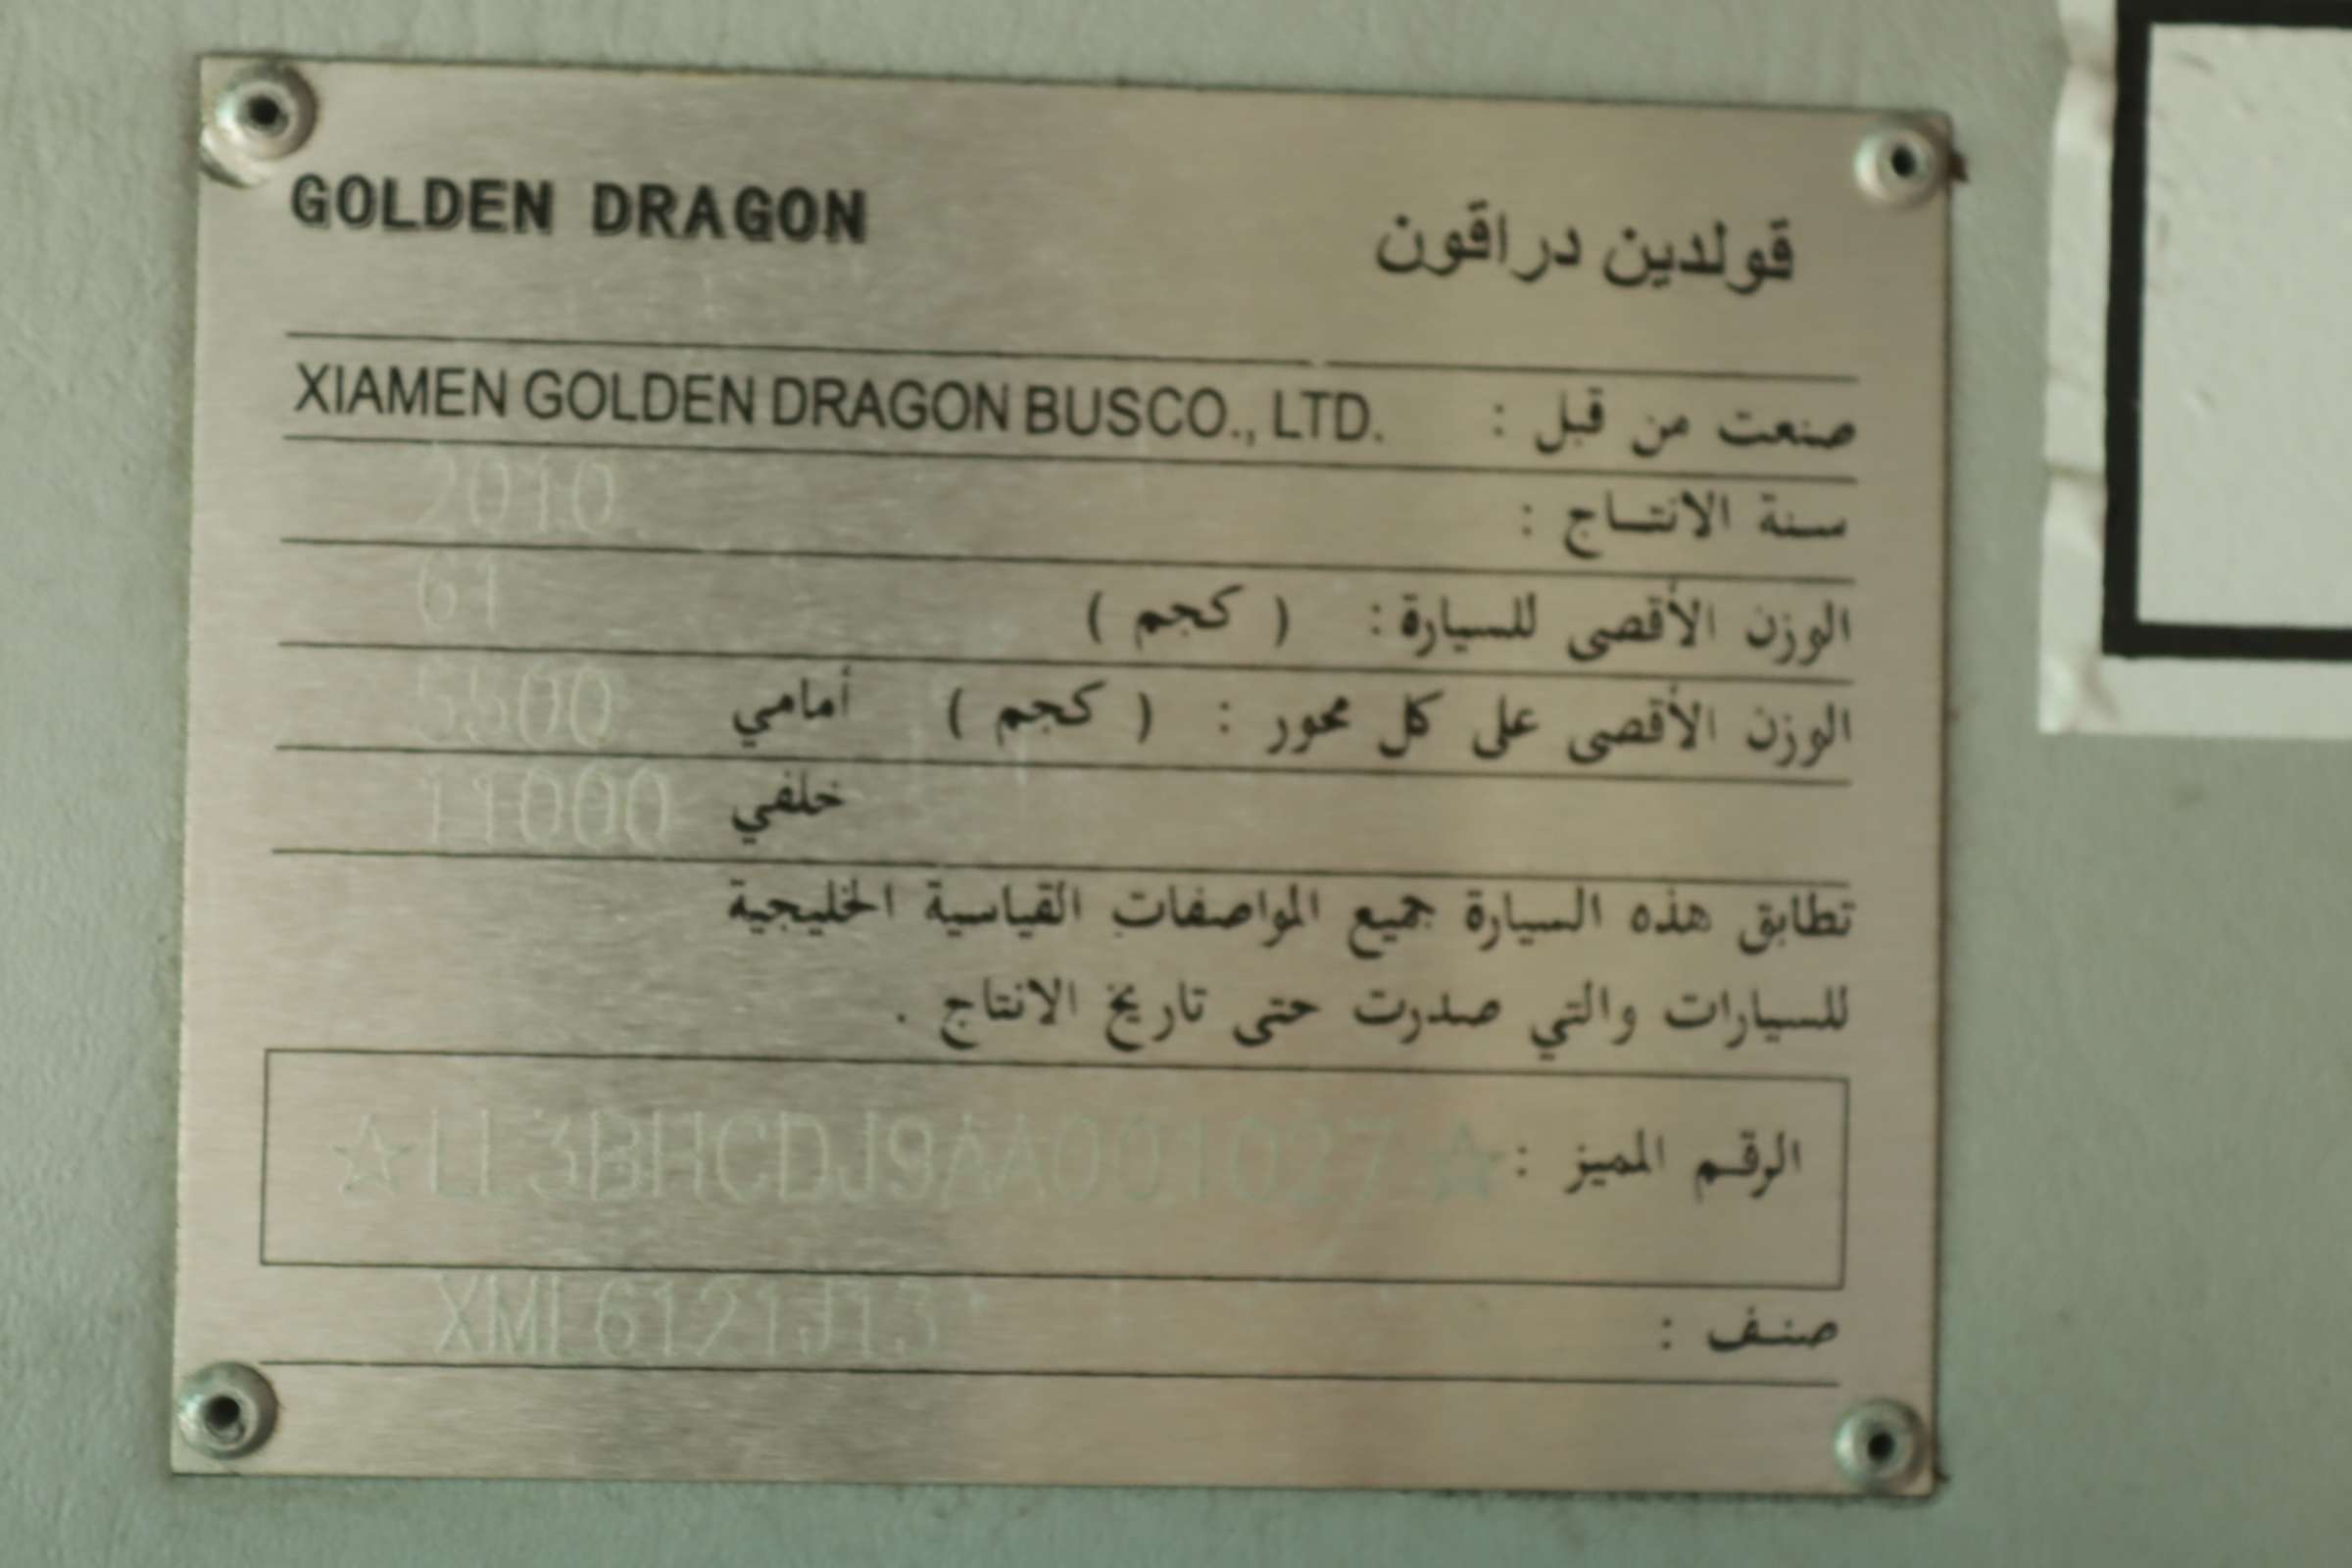 GOLDEN DRAGON قولدين دراقون
صنعت من قبل : XIAMEN GOLDEN DRAGON BUS CO., LTD.
سنة الانتاج : 2010
الوزن الأقصى للسيارة : ( كجم ) 61
الوزن الأقصى على كل محور : ( كجم ) أمامي 5500
خلفي 11000
تطابق هذه السيارة جميع المواصفات القياسية الخليجية
للسيارات والتي صدرت حتى تاريخ الانتاج .
الرقم المميز : ☆LL3BHCDJ9AA001027☆
صنف : XML6121J13